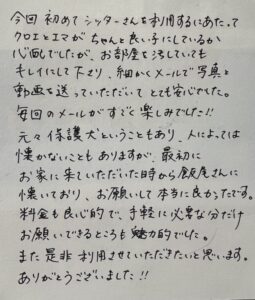 今回 初めて シッターさんを利用するにあたって
クロエとエマが ちゃんと良い子にしているか
心配でしたが、お部屋を汚していても
キレイにして下さり、細かくメールで写真と
動画を送っていただいて とても安心でした。
毎回のメールが すごく楽しみでした!!
元々保護犬ということもあり、人によっては
懐かないこともありますが、最初に
お家に来ていただいた時から飯尾さんに
懐いており、お願いして本当に良かったです。
料金も良心的で、手軽に必要な分だけ
お願いできるところも魅力的でした。
また是非 利用させていただきたいと思います。
ありがとうございました!!